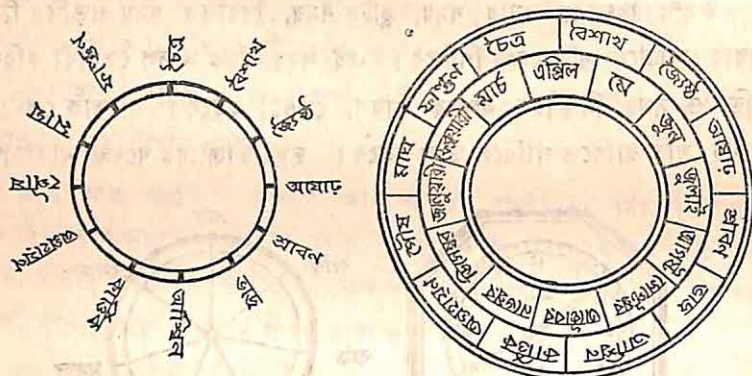 চৈত্র
বৈশাখ
জ্যৈষ্ঠ
আষাঢ়
শ্রাবন
ভাদ্র
আশ্বিন
কার্তিক
অগ্রহায়ণ
পৌষ
মাঘ
ফাল্গুন
বৈশাখ
জ্যৈষ্ঠ
আষাঢ়
শ্রাবণ
ভাদ্র
আশ্বিন
কার্তিক
অগ্রহায়ণ
পৌষ
মাঘ
ফাল্গুন
চৈত্র
এপ্রিল
মে
জুন
জুলাই
আগস্ট
সেপ্টেম্বর
অক্টোবর
নভেম্বর
ডিসেম্বর
জানুয়ারী
ফেব্রুয়ারী
মার্চ